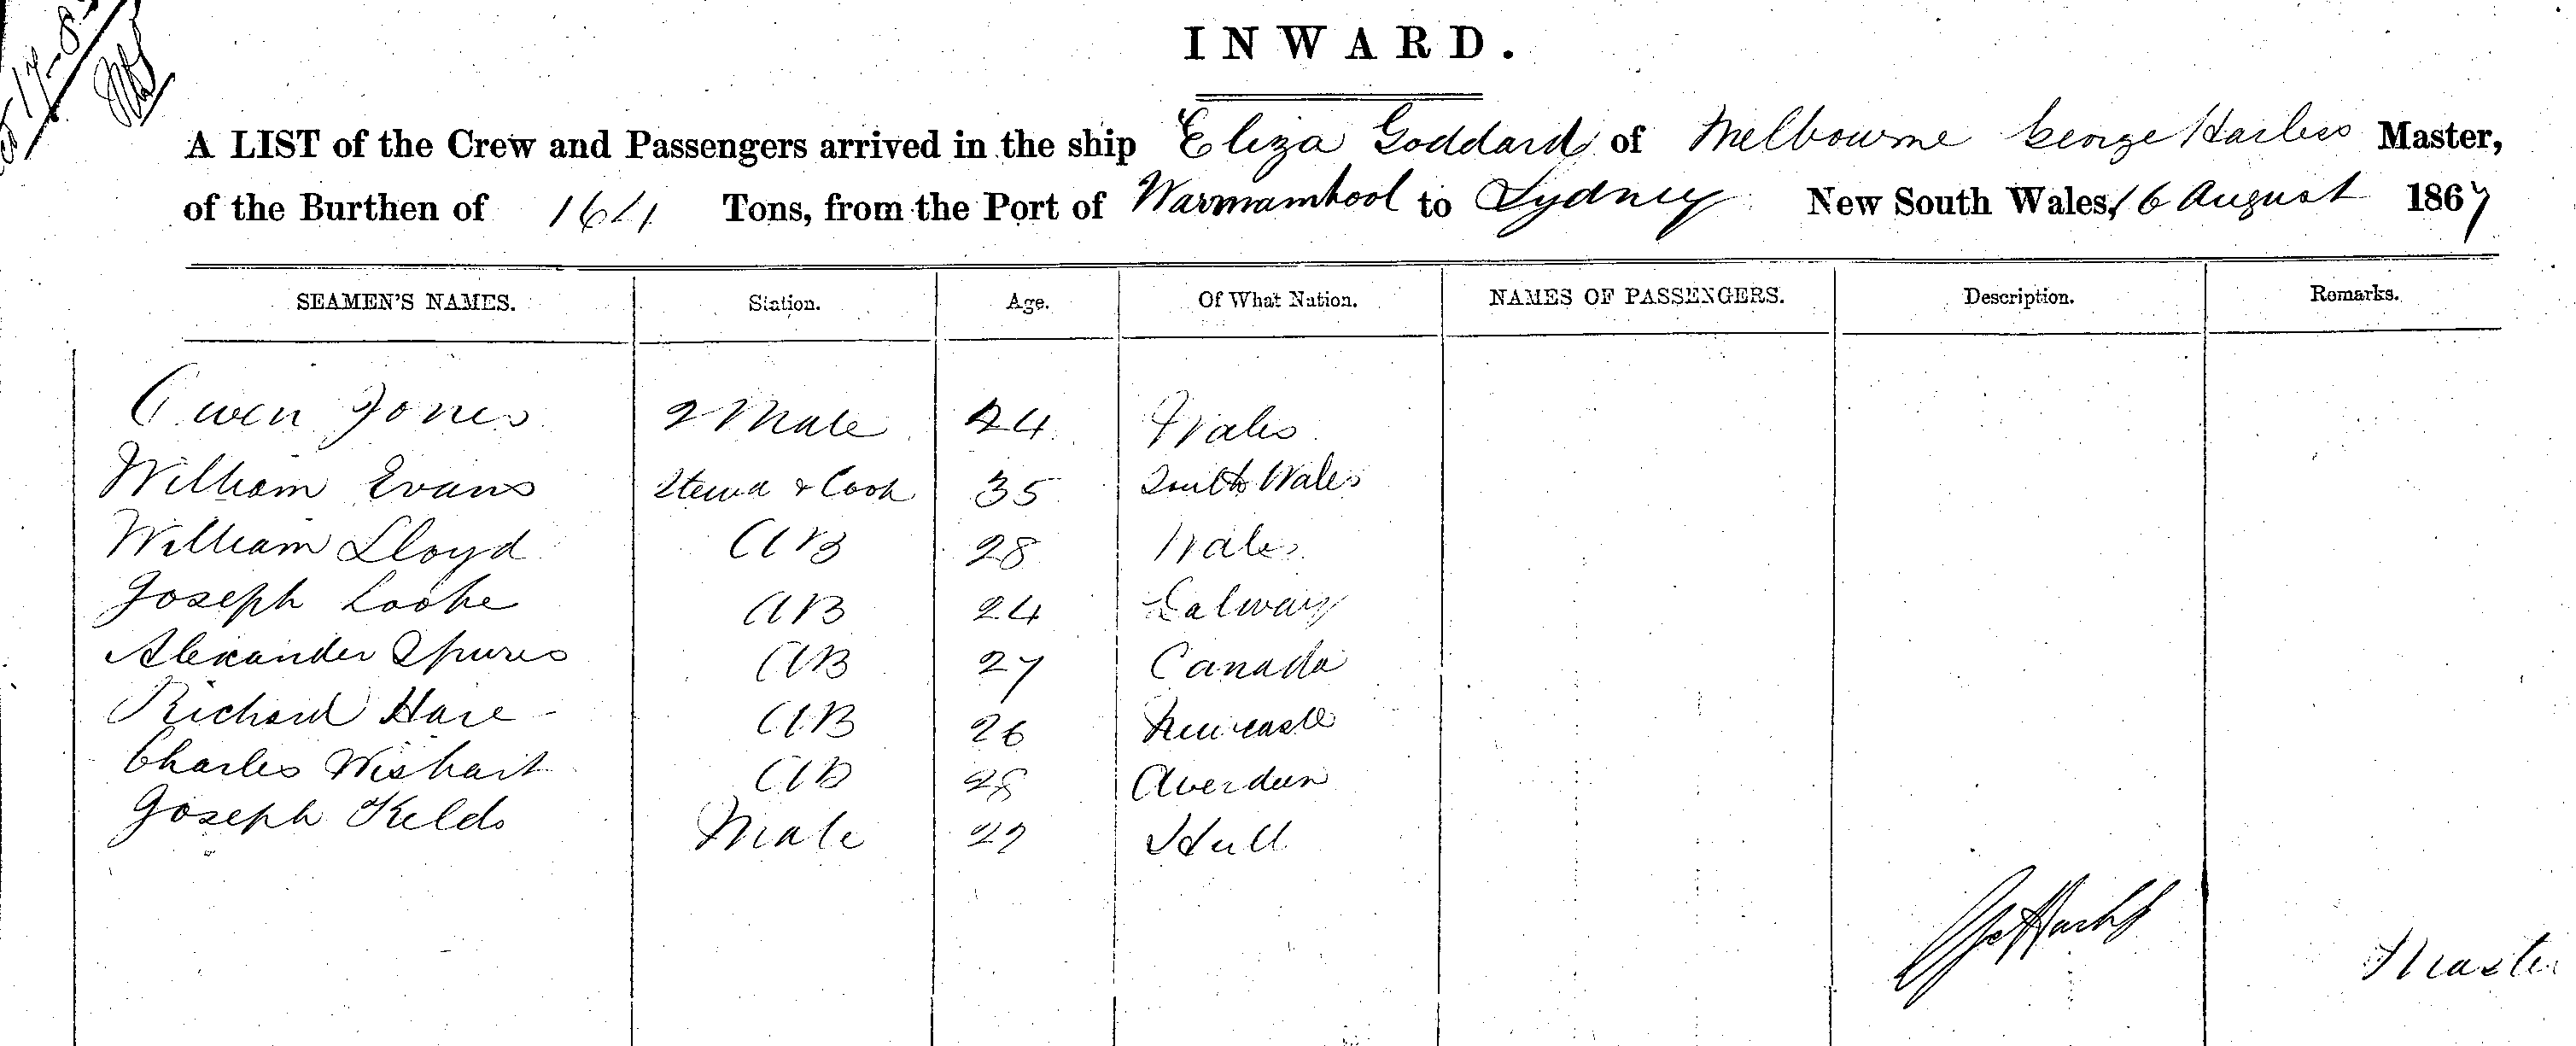 17-8
INWARD.
A LIST of the Crew and Passengers arrived in the ship Eliza Goddard of Melbourne George Harless Master,
of the Burthen of 164 Tons, from the Port of Warrnambool to Sydney New South Wales, 16 August 1867
SEAMEN'S NAMES. Station. Age. Of What Nation. NAMES OF PASSENGERS. Description. Remarks.
Owen Jones 2 Mate 24 Wales
William Evans Stewd & Cook 35 South Wales
William Lloyd AB 28 Wales
Joseph Looke AB 24 Galway
Alexander Spures AB 27 Canada
Richard Hare AB 26 Newcastle
Charles Wishart AB 28 Aberdeen
Joseph Kelds Mate 27 Hull
Master